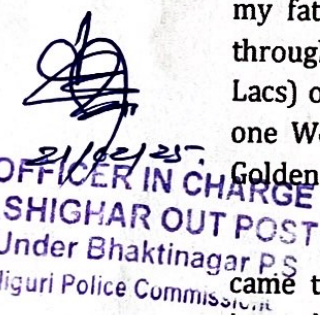 my fat
throug
Lacs) o
one W
Golden
came t
21/02/25.
OFFICER IN CHARGE
SHIGHAR OUT POST
Under Bhaktinagar PS
liguri Police Commiss